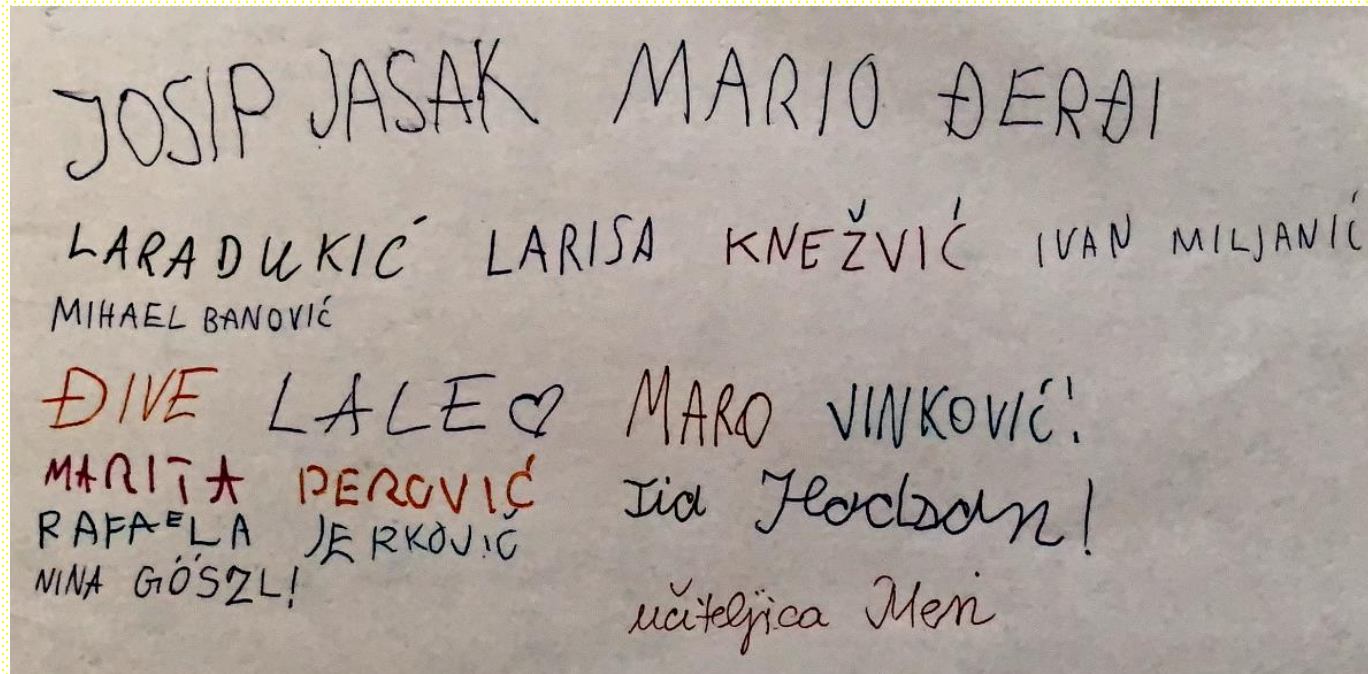 JOSIP JASAK MARIO ĐERĐI
LARA DUKIĆ LARISA KNEŽVIĆ IVAN MILJANIĆ
MIHAEL BANOVIĆ
ĐIVE LALE♡ MARO VINKOVIĆ!
MARITA PEROVIĆ
RAFAELA JERKOVIĆ
NINA GÖSZL!
učiteljica Meri